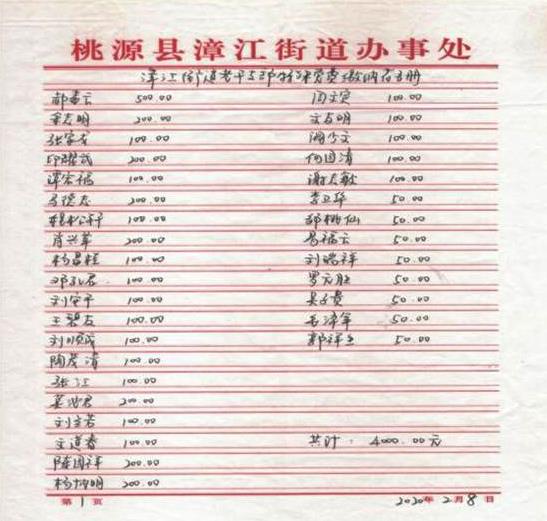 桃源县漳江街道办事处
漳江街道老干支部特殊党费缴纳花名册
500.00 100.00
志明 200.00 文志明 100.00
张家 100.00 100.00
邱 200.00 何国清 100.00
谭宏福 100.00 谢志敏 100.00
志 200.00 李卫华 50.00
100.00 仙 50.00
肖兴华 200.00 易福云 50.00
杨昌桂 100.00 刘瑞祥 50.00
邓 君 100.00 罗元胜 50.00
刘安平 100.00 贵 50.00
王碧友 100.00 毛泽军 50.00
刘顺成 100.00 郭祥 50.00
陶茂清 100.00
张江 100.00
君 200.00
刘 若 100.00
文道春 100.00 共计: 4000.00元
陆国祥 200.00
杨坤明 200.00
第1页 2020年2月8日